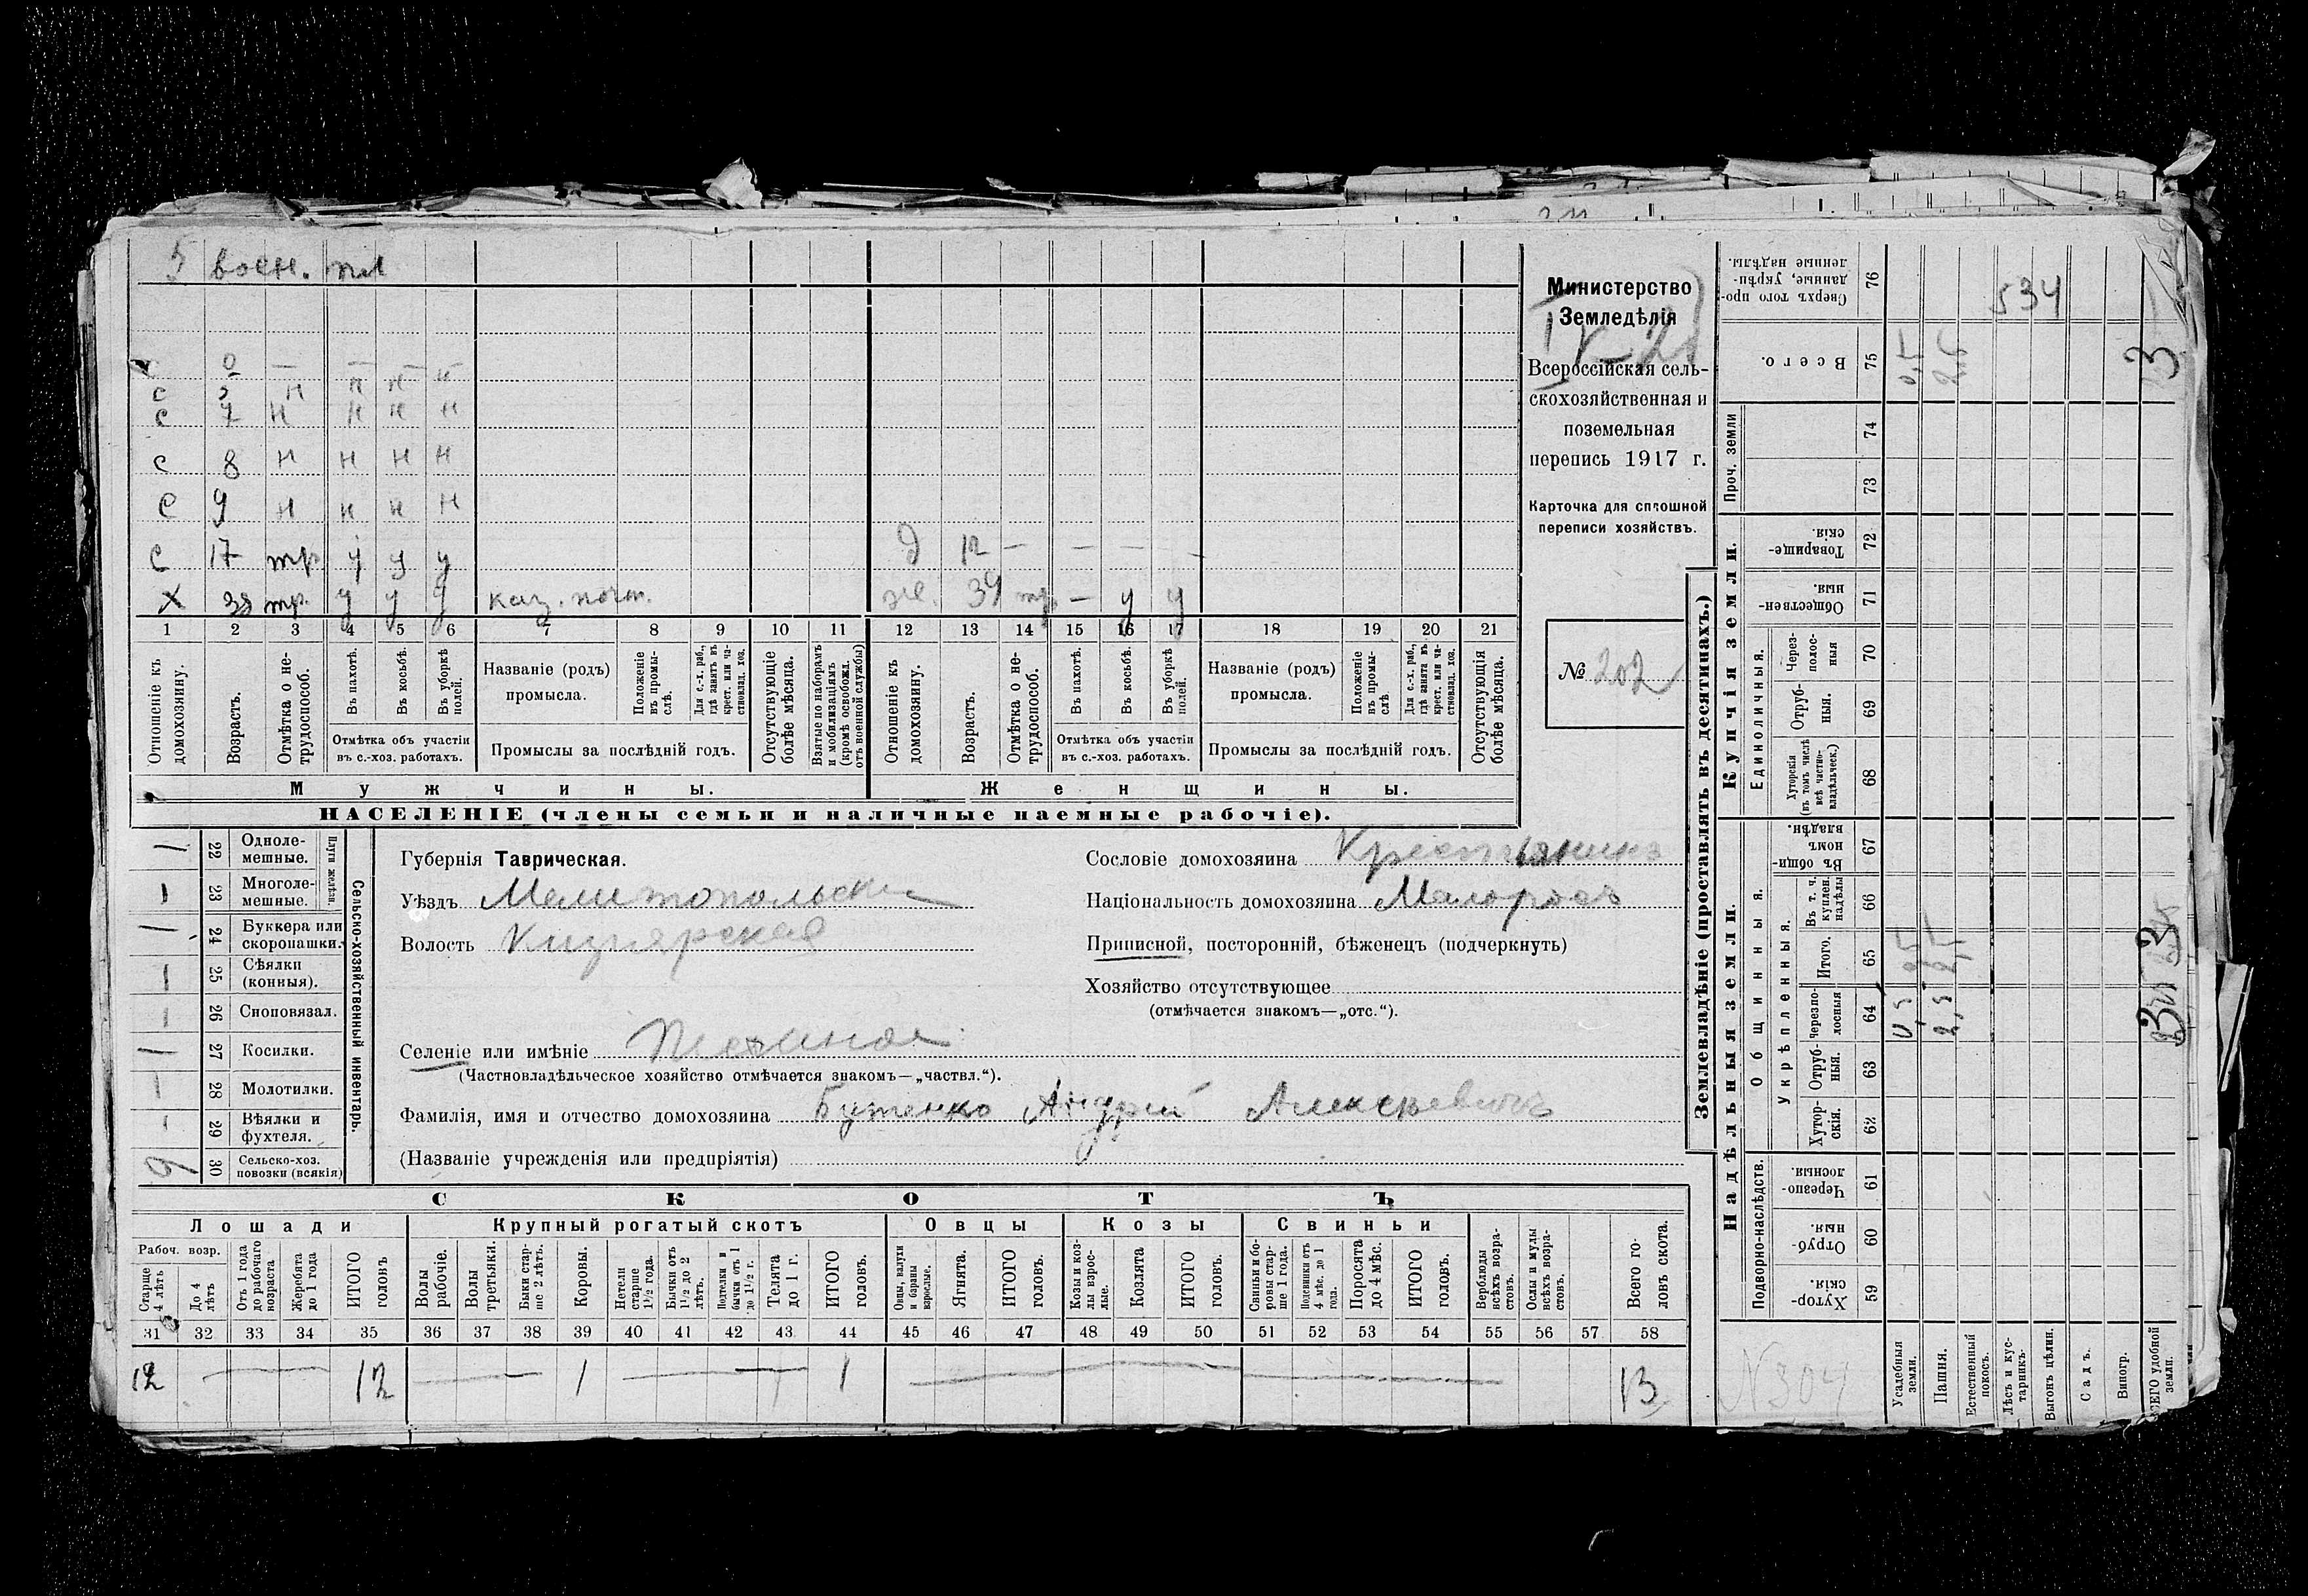 5 воен. пл
534
Министерство
Земледѣлія
Всероссійская сель-
скохозяйственная и
поземельная
перепись 1917 г.
Карточка для сплошной
переписи хозяйствъ.
№ 202
0 — — — —
с 3 н н н н
с 7 н н н н
с 8 н н н н
с 9 н н н н
с 17 тр. у у у
д 12 — — — —
Х 38 тр. у у у каз. почт.
же. 39 тр. — у у
1 2 3 4 5 6 7 8 9 10 11 12 13 14 15 16 17 18 19 20 21
Отношеніе къ домохозяину.
Возрастъ.
Отмѣтка о не-трудоспособ.
Въ пахотѣ.
Въ косьбѣ.
Въ уборкѣ полей.
Отмѣтка объ участіи
въ с.-хоз. работахъ.
Названіе (родъ)
промысла.
Положеніе въ промы-слѣ.
Для с.-х. раб., гдѣ занятъ въ крест. или ча-стновлад. хоз.
Промыслы за послѣдній годъ.
Отсутствующіе болѣе мѣсяца.
Взятые по наборамъ и мобилизаціямъ (кромѣ освобожд. отъ военной службы)
Отношеніе къ домохозяину.
Возрастъ.
Отмѣтка о не-трудоспособ.
Въ пахотѣ.
Въ косьбѣ.
Въ уборкѣ полей.
Отмѣтка объ участіи
въ с.-хоз. работахъ.
Названіе (родъ)
промысла.
Положеніе въ промы-слѣ
Для с.-х. раб., гдѣ занята въ крест. или ча-стновлад. хоз.
Промыслы за послѣдній годъ.
Отсутствующія болѣе мѣсяца.
Мужчины.
Женщины.
НАСЕЛЕНІЕ (члены семьи и наличные наемные рабочіе).
Сельско-хозяйственный инвентарь.
Плуги желѣзн.
1 22 Одноле-мешные.
1 23 Многоле-мешные.
1 24 Буккера или скоропашки.
1 25 Сѣялки (конныя).
1 26 Сноповязал.
1 27 Косилки.
1 28 Молотилки.
1 29 Вѣялки и фухтеля.
9 30 Сельско-хоз. повозки (всякія)
Губернія Таврическая.
Уѣздъ Мелитопольски
Волость Кизиярская
Сословіе домохозяина Крестьянинъ
Національность домохозяина Малоросъ
Приписной, посторонній, бѣженецъ (подчеркнуть)
Хозяйство отсутствующее
(отмѣчается знакомъ—„отс.“).
Селеніе или имѣніе Песчаное
(Частновладѣльческое хозяйство отмѣчается знакомъ—„частвл.“).
Фамилія, имя и отчество домохозяина Бутенко Андрей Алексѣевичъ
(Названіе учрежденія или предпріятія)
СКОТЪ
Лошади Крупный рогатый скотъ Овцы Козы Свиньи
Рабоч. возр.
Старще 4 лѣтъ
До 4 лѣтъ
Отъ 1 года до рабочаго возраста
Жеребята до 1 года
ИТОГО головъ
Волы рабочіе.
Волы третьяки.
Быки стар-ше 2 лѣтъ.
Коровы.
Нетели старше 1½ года.
Бычки отъ 1½ до 2 лѣтъ.
Подтелки и бычки отъ 1 до 1½ г.
Телята до 1 г.
ИТОГО головъ.
Овцы, валухи и бараны взрослые.
Ягнята.
ИТОГО головъ.
Козы и коз-лы взрос-лые.
Козлята
ИТОГО головъ.
Свиньи и бо-ровы стар-ше 1 года.
Подсвинки отъ 4 мѣс. до 1 года.
Поросята до 4 мѣс.
ИТОГО головъ.
Верблюды всѣхъ возра-стовъ.
Ослы и мулы всѣхъ возра-стовъ.
Всего го-ловъ скота.
31 32 33 34 35 36 37 38 39 40 41 42 43 44 45 46 47 48 49 50 51 52 53 54 55 56 57 58
12 — 12 — 1 — 1 — — 13
Землевладѣніе (проставлять въ десятинахъ.)
Надѣльныя земли. Купчія земли. Проч. земли
Подворно-наслѣдств. Общинныя. Укрѣпленныя. Единоличныя.
59 Хутор-скія.
60 Отруб-ныя.
61 Черезпо-лосныя.
62 Хутор-скія.
63 Отруб-ныя.
64 Черезпо-лосныя
65 Итого.
66 Въ т. ч. куплен. надѣлы
67 Въ общи-номъ владѣн.
68 Хуторскія (въ томъ числѣ всѣ частно-владѣльческ.)
69 Отруб-ныя.
70 Через-полос-ныя
71 Обществен-ныя.
72 Товарище-скія.
73
74
75 Всего.
76 Сверхъ того про-данные, укрѣп-ленные надѣлы.
Усадебныя земли. 0,5
Пашня. 2,5 2,5
Естественный покосъ.
Лѣсъ и кус-тарникъ.
Выгонъ цѣлин.
Садъ.
Виногр.
ВСЕГО удобной земли. 3 3 3
N 304